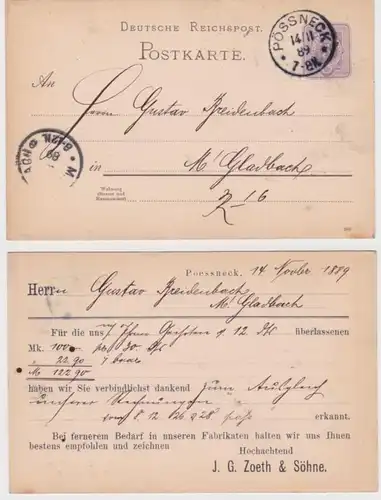 DEUTSCHE REICHSPOST.
POSTKARTE.
PÖSSNECK
14/11
89
7-8N.
An
Herrn Gustav Breidenbach
in M'Gladbach
Wohnung
(Strasse und
Hausnummer)
Poessneck, 14 Novbr 1889
Herrn Gustav Breidenbach
M'Gladbach
Für die uns mit Ihrem Geehrten v 12 ds überlassenen
Mk. 100.- pr 30
" 22.90 baar
M 122.90
haben wir Sie verbindlichst dankend zum Ausgleich
unserer Rechnungen
8. 12. 26 & 28 erkannt.
Bei fernerem Bedarf in unseren Fabrikaten halten wir uns Ihnen
bestens empfohlen und zeichnen Hochachtend
J. G. Zoeth & Söhne.